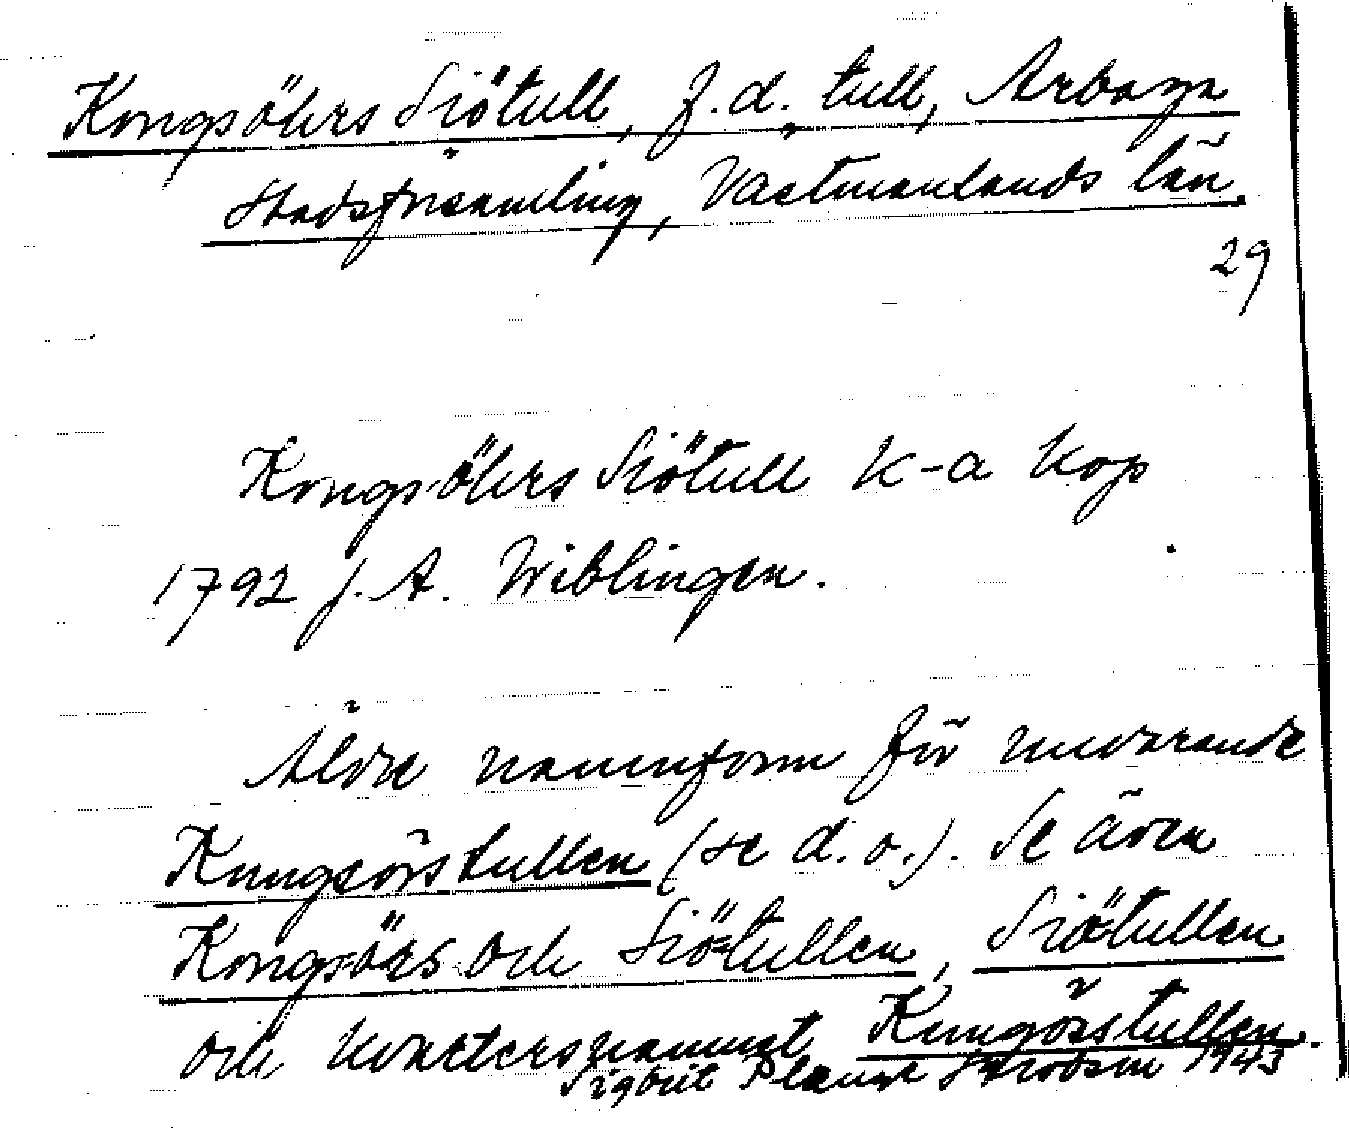 Kongsöhrs Siötull, f.d. tull, Arboga
Stadsförsamling, Västmanlands län.
29
Kongsöhrs Siötull K-a Kop
1792 J. A. Wiblingen.
Äldre namnform för nuvarande
Kungsörstullen (se d. o.). Se även
Kongsörs och Siötullen, Siötullen
och kvartersnamnet Kungsörstullen.
Sigbrit Plænge Jacobson 1943